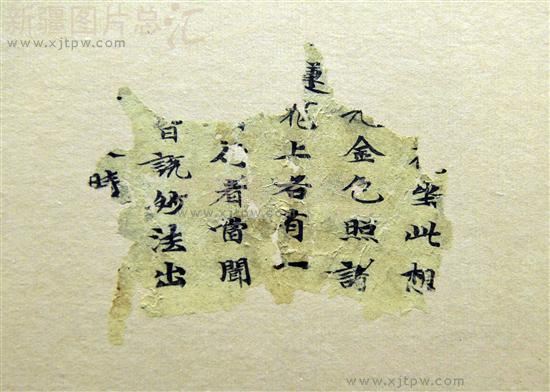 新疆图片总汇
www.xjtpw.com
坐此想
金色照諸
蓮花上各有一
行者當聞
皆說妙法出
時
www.xjtpw.com
www.xjtpw.com